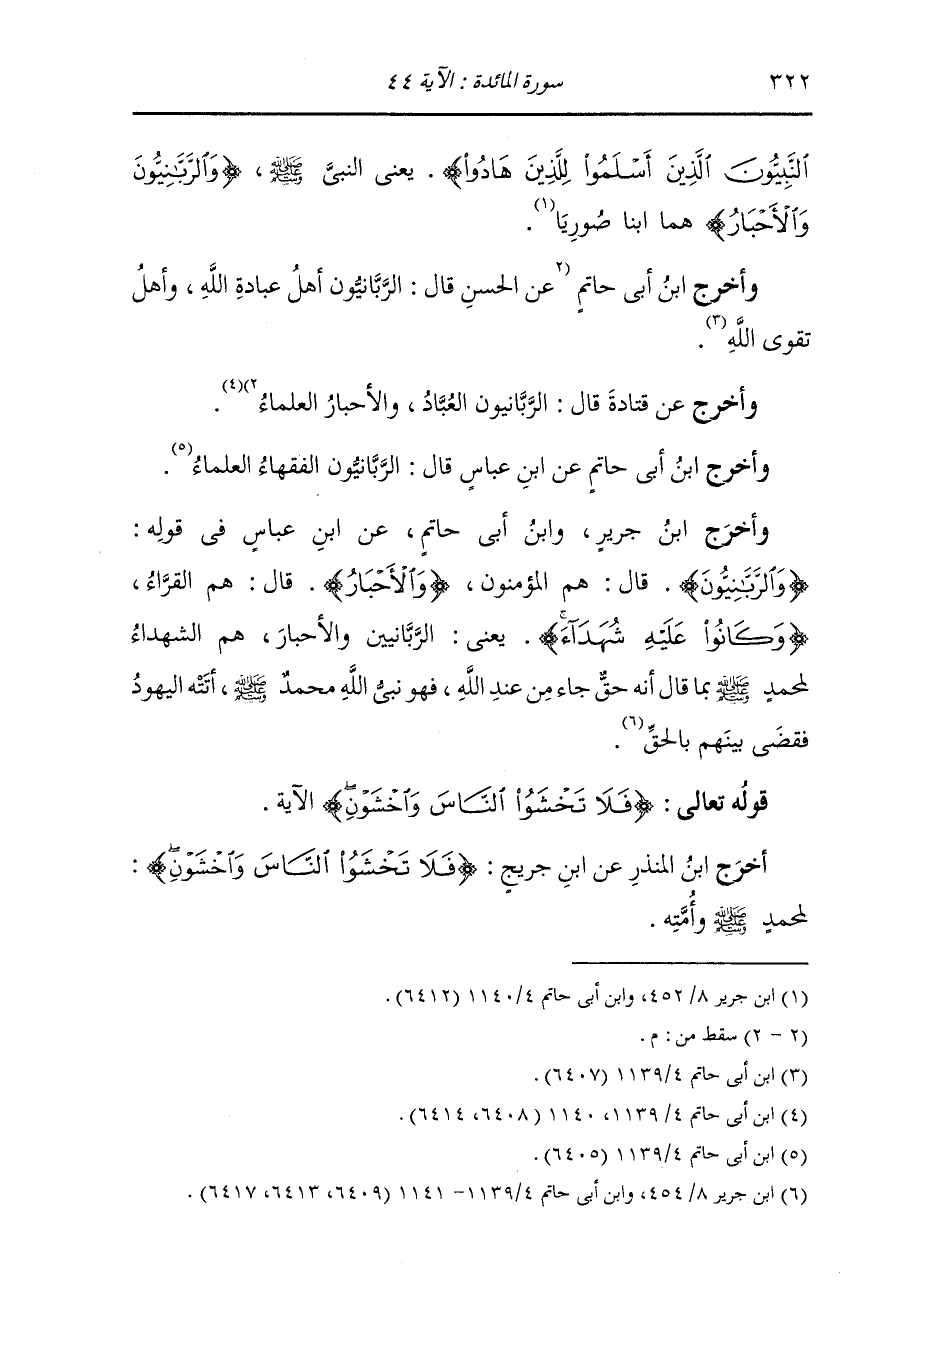 ٣٢٢ سورة المائدة : الآية ٤٤
ٱلنَّبِيُّونَ ٱلَّذِينَ أَسْلَمُواْ لِلَّذِينَ هَادُواْ﴾ . يعنى النبىَّ ﷺ ، ﴿وَٱلرَّبَّٰنِيُّونَ
وَٱلْأَحْبَارُ﴾ هما ابنا صُورِيَا(١) .
وأخرج ابنُ أبى حاتمٍ (٢عن الحسنِ قال : الرَّبَّانيُّون أهلُ عبادةِ اللَّهِ ، وأهلُ
تقوى اللَّهِ(٣) .
وأخرج عن قتادةَ قال : الرَّبَّانيون العُبَّادُ ، والأحبارُ العلماءُ٢)(٤) .
وأخرج ابنُ أبى حاتمٍ عن ابنِ عباسٍ قال : الرَّبَّانيُّون الفقهاءُ العلماءُ(٥) .
وأخرَج ابنُ جريرٍ ، وابنُ أبى حاتمٍ ، عن ابنِ عباسٍ فى قولِه :
﴿وَٱلرَّبَّٰنِيُّونَ﴾ . قال : هم المؤمنون ، ﴿وَٱلْأَحْبَارُ﴾ . قال : هم القرَّاءُ ،
﴿وَكَانُواْ عَلَيْهِ شُهَدَآءَۚ﴾ . يعنى : الرَّبَّانيين والأحبارَ ، هم الشهداءُ
لمحمدٍ ﷺ بما قال أنه حقٌّ جاء مِن عندِ اللَّهِ ، فهو نبىُّ اللَّهِ محمدٌ ﷺ ، أتَتْه اليهودُ
فقضَى بينَهم بالحقِّ(٦) .
قولُه تعالى : ﴿فَلَا تَخْشَوُاْ ٱلنَّاسَ وَٱخْشَوْنِۖ﴾ الآية .
أخرَج ابنُ المنذرِ عن ابنِ جريجٍ : ﴿فَلَا تَخْشَوُاْ ٱلنَّاسَ وَٱخْشَوْنِۖ﴾ :
لمحمدٍ ﷺ وأُمَّتِه .
(١) ابن جرير ٨/ ٤٥٢، وابن أبى حاتم ١١٤٠/٤ (٦٤١٢) .
(٢ - ٢) سقط من : م .
(٣) ابن أبى حاتم ١١٣٩/٤ (٦٤٠٧) .
(٤) ابن أبى حاتم ٤/ ١١٣٩، ١١٤٠ (٦٤٠٨، ٦٤١٤) .
(٥) ابن أبى حاتم ١١٣٩/٤ (٦٤٠٥) .
(٦) ابن جرير ٨/ ٤٥٤، وابن أبى حاتم ١١٣٩/٤- ١١٤١ (٦٤٠٩، ٦٤١٣، ٦٤١٧) .